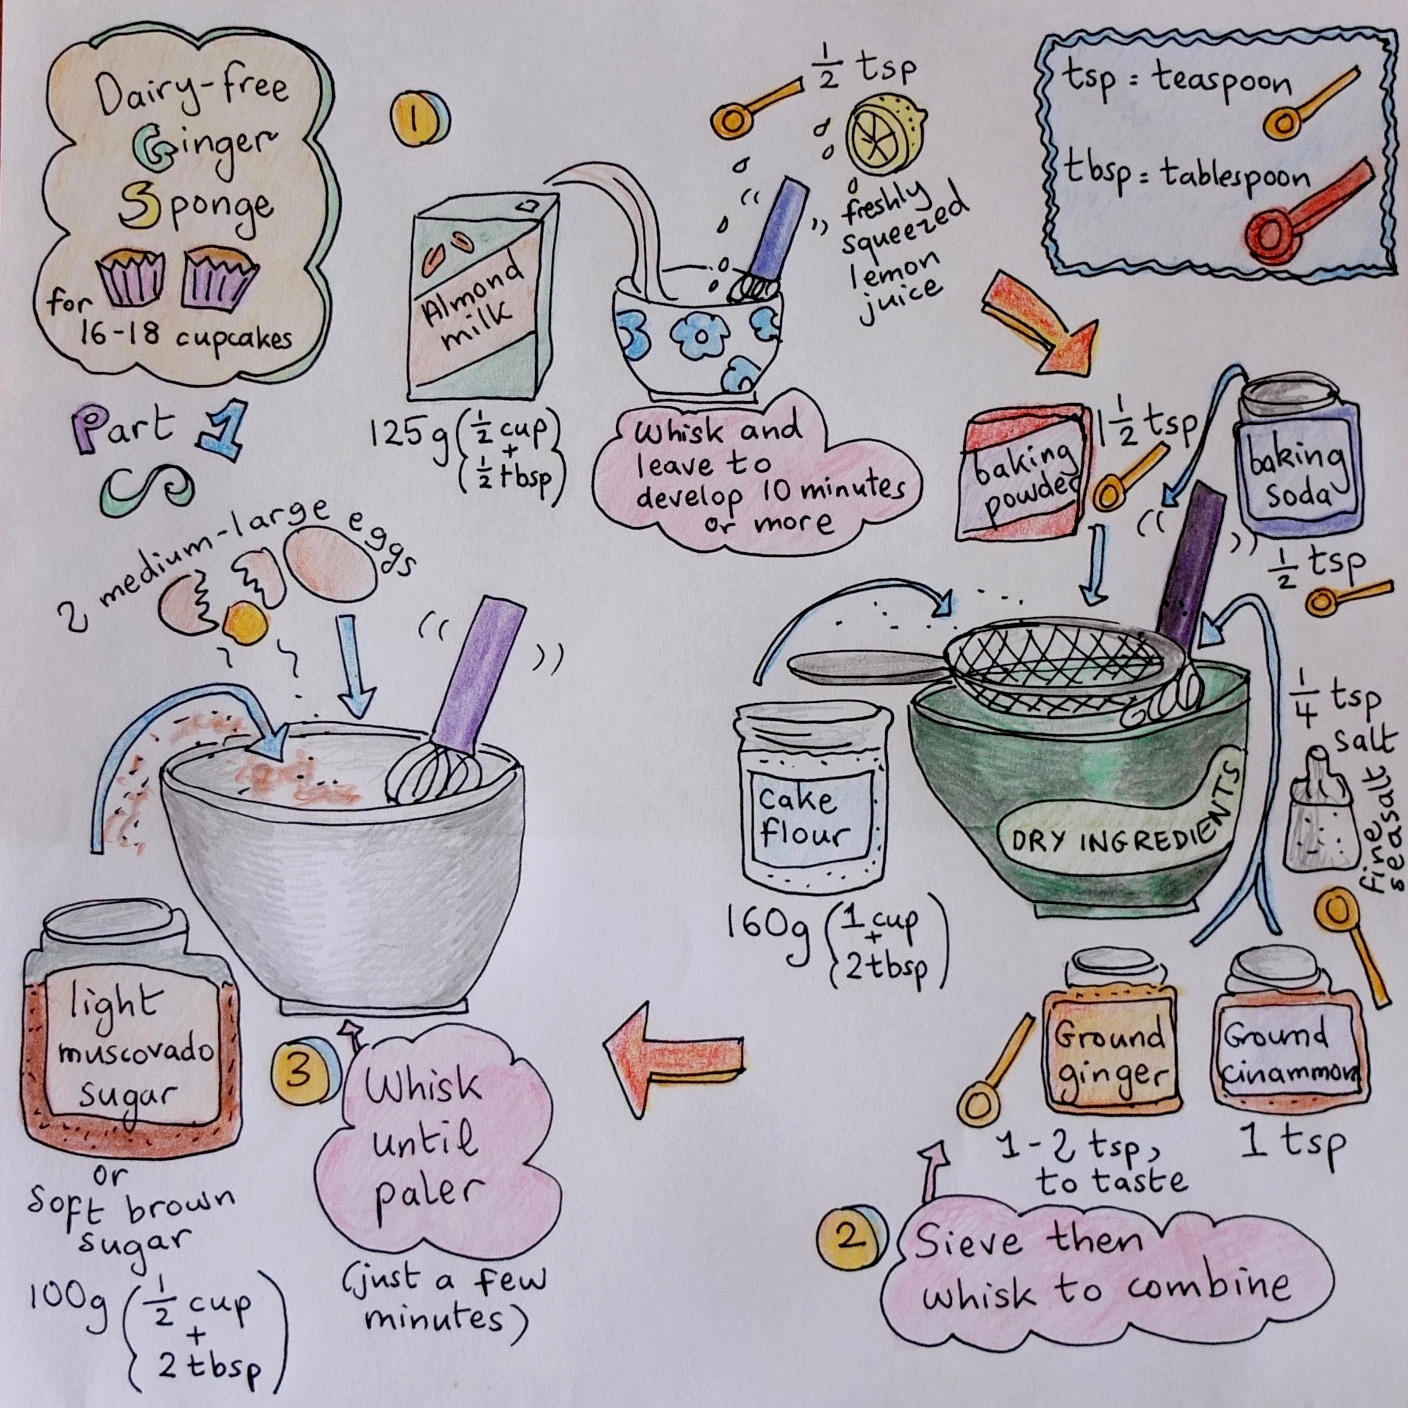 Dairy-free
Ginger
Sponge
for
16-18 cupcakes
Part 1
1
1/2 tsp
freshly
squeezed
lemon
juice
tsp = teaspoon
tbsp = tablespoon
Almond
milk
125g (1/2 cup
+
1/2 tbsp)
Whisk and
leave to
develop 10 minutes
or more
baking
powder
1 1/2 tsp
baking
soda
1/2 tsp
1/4 tsp
salt
fine
seasalt
cake
flour
160g (1 cup
+
2 tbsp)
DRY INGREDIENTS
Ground
ginger
1-2 tsp,
to taste
Ground
cinammon
1 tsp
2
Sieve then
whisk to combine
2 medium-large eggs
light
muscovado
sugar
or
soft brown
sugar
100g (1/2 cup
+
2 tbsp)
3
Whisk
until
paler
(just a few
minutes)